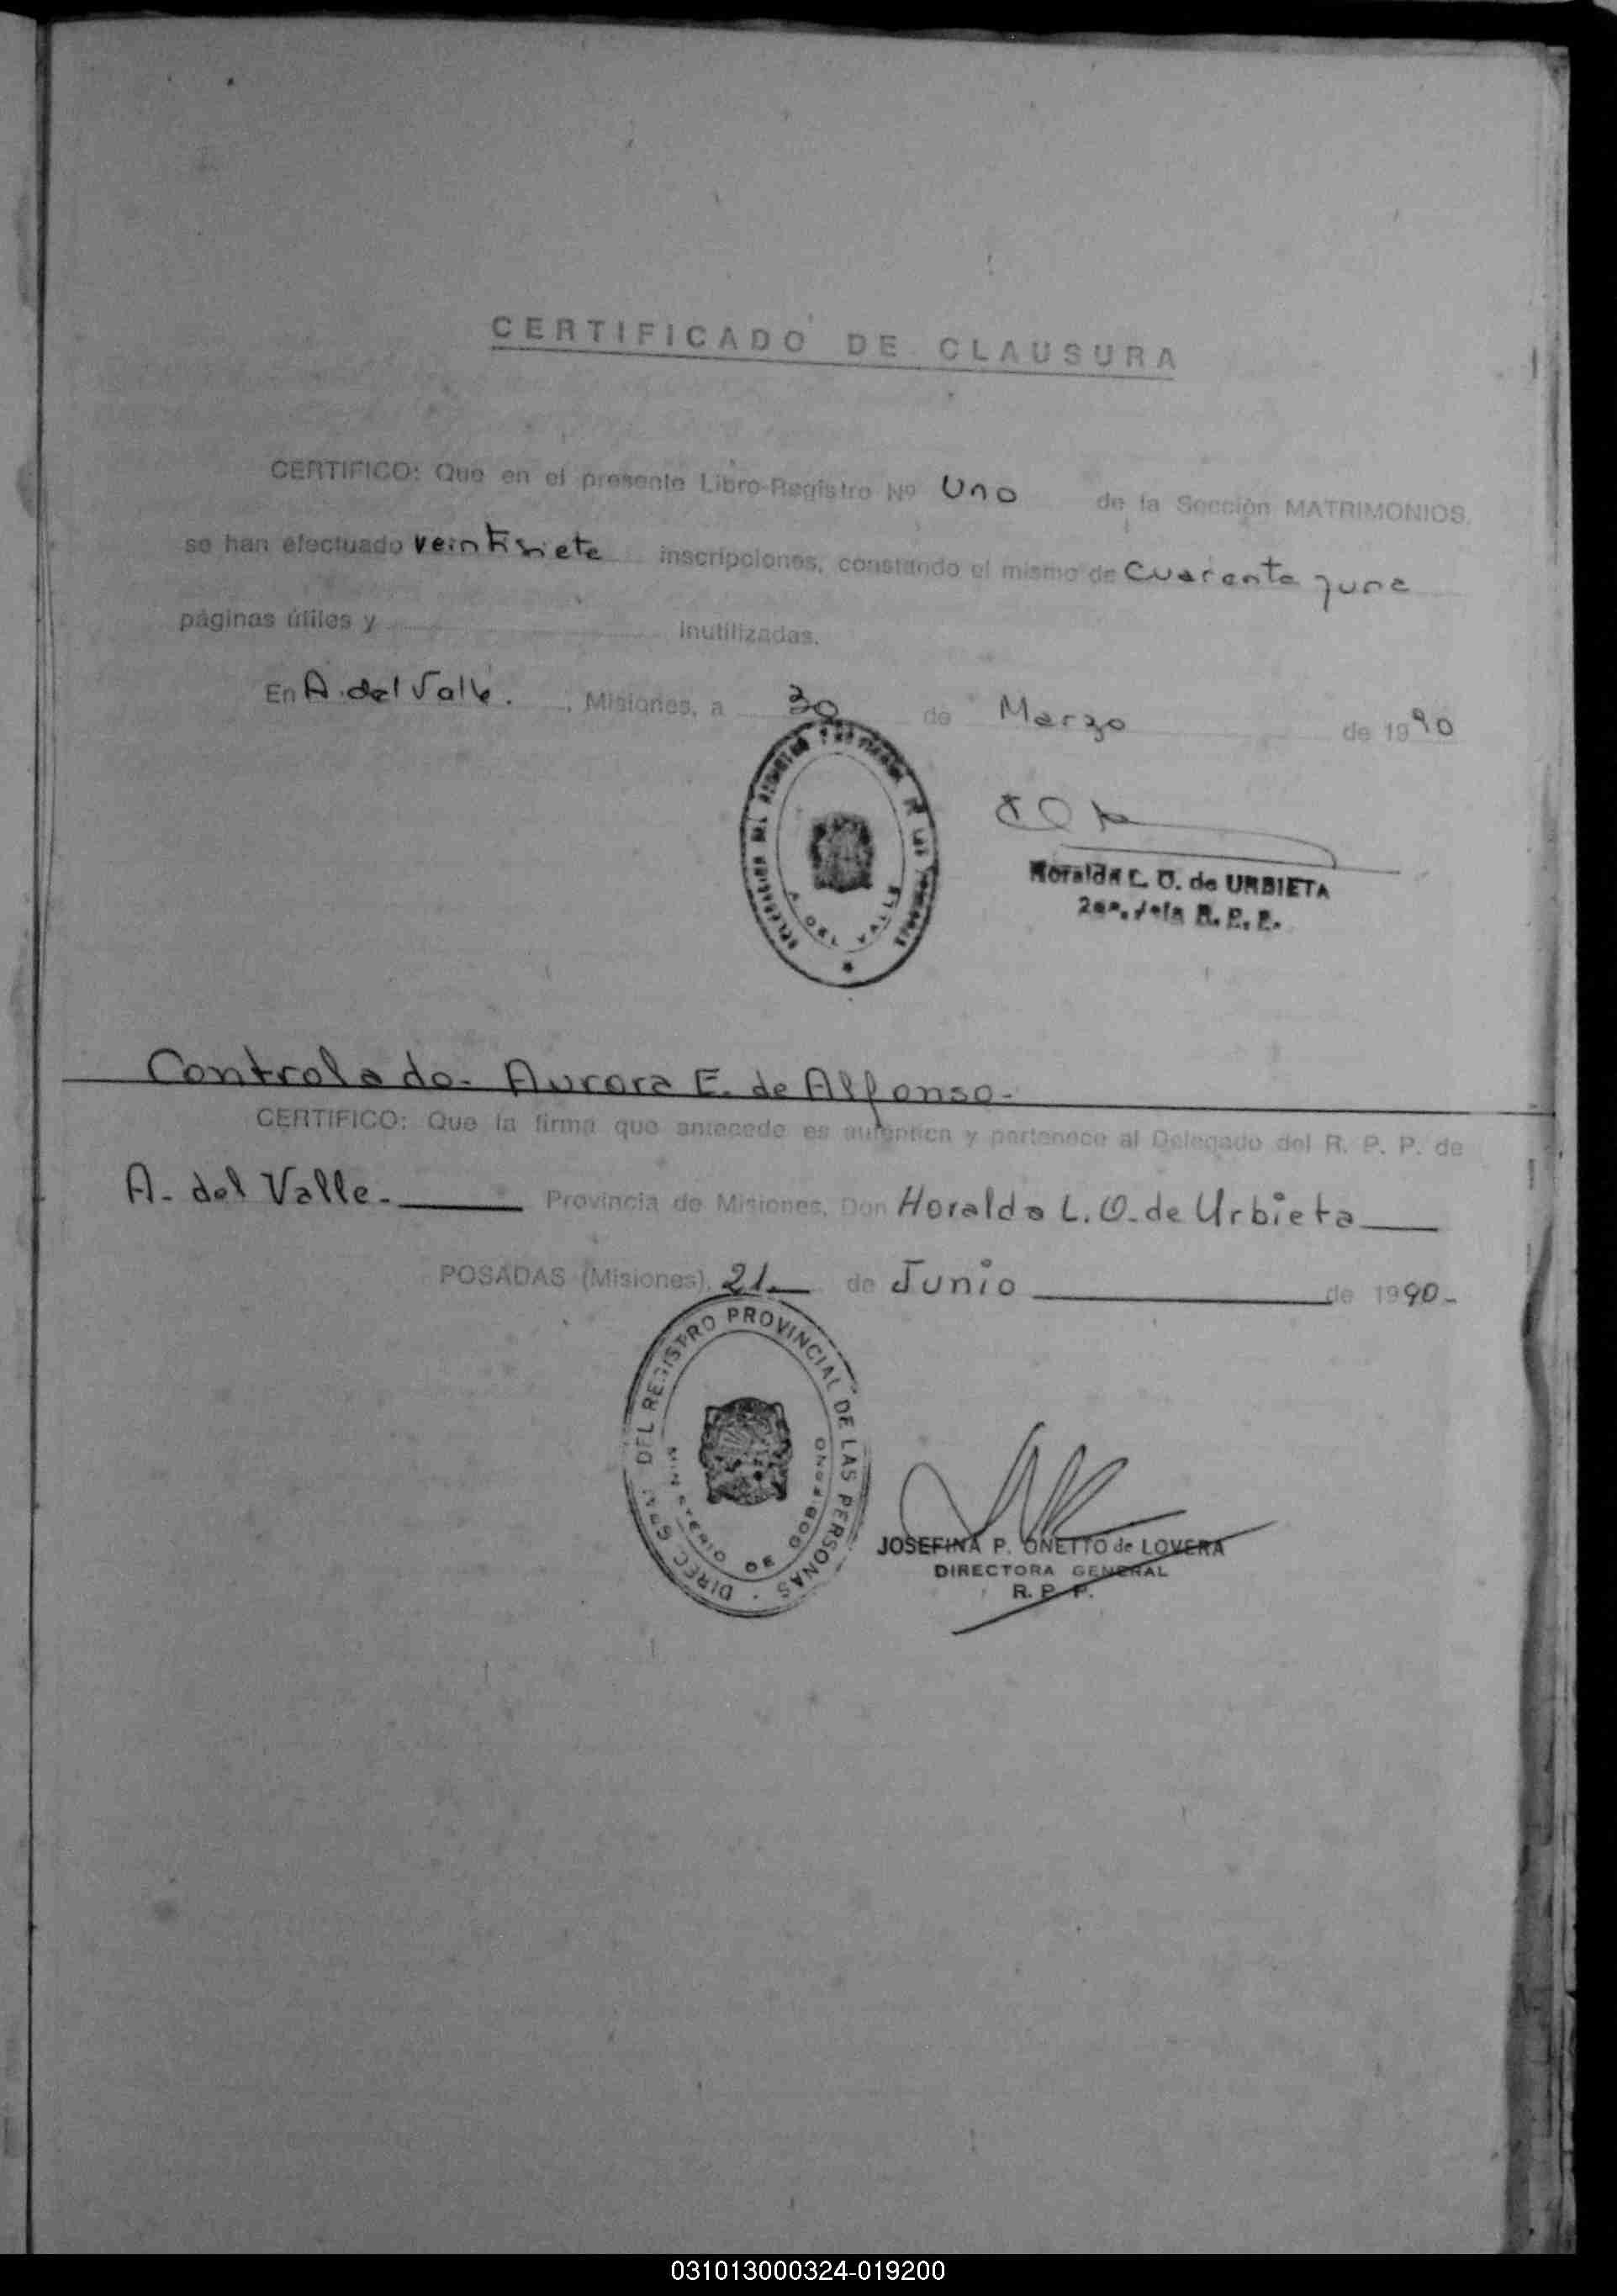 CERTIFICADO DE CLAUSURA
CERTIFICO: Que en el presente Libro-Registro Nº Uno de la Sección MATRIMONIOS,
se han efectuado veintisiete inscripciones, constando el mismo de Cuarenta y una
páginas útiles y inutilizadas.
En A. del Valle. , Misiones, a 30 de Marzo de 1990
A. DEL VALLE
Horalda L. O. de URBIETA
R. P. P.
Controlado- Aurora E. de Alfonso-
CERTIFICO: Que la firma que antecede es auténtica y pertenece al Delegado del R. P. P. de
A- del Valle- Provincia de Misiones, Don Horalda L. O. de Urbieta
POSADAS (Misiones), 21 de Junio de 1990-
DIREC. GRAL. DEL REGISTRO PROVINCIAL DE LAS PERSONAS
MINISTERIO DE GOBIERNO
JOSEFINA P. ONETTO de LOVERA
DIRECTORA GENERAL
R. P. P.
031013000324-019200